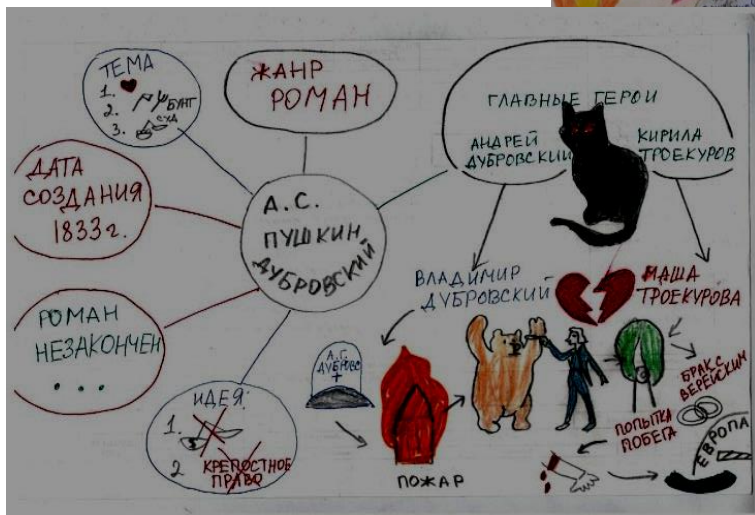 ТЕМА
1.
2. БУНТ
3. СУД
ЖАНР
РОМАН
ГЛАВНЫЕ ГЕРОИ
АНДРЕЙ
ДУБРОВСКИЙ
КИРИЛА
ТРОЕКУРОВ
ДАТА
СОЗДАНИЯ
1833г.
А.С.
ПУШКИН
ДУБРОВСКИЙ
РОМАН
НЕЗАКОНЧЕН
...
ИДЕЯ
1.
2 КРЕПОСТНОЕ
ПРАВО
ВЛАДИМИР
ДУБРОВСКИЙ
МАША
ТРОЕКУРОВА
А.Г.
ДУБРОВС
ПОЖАР
БРАК С
ВЕРЕЙСКИМ
ПОПЫТКА
ПОБЕГА
ЕВРОПА